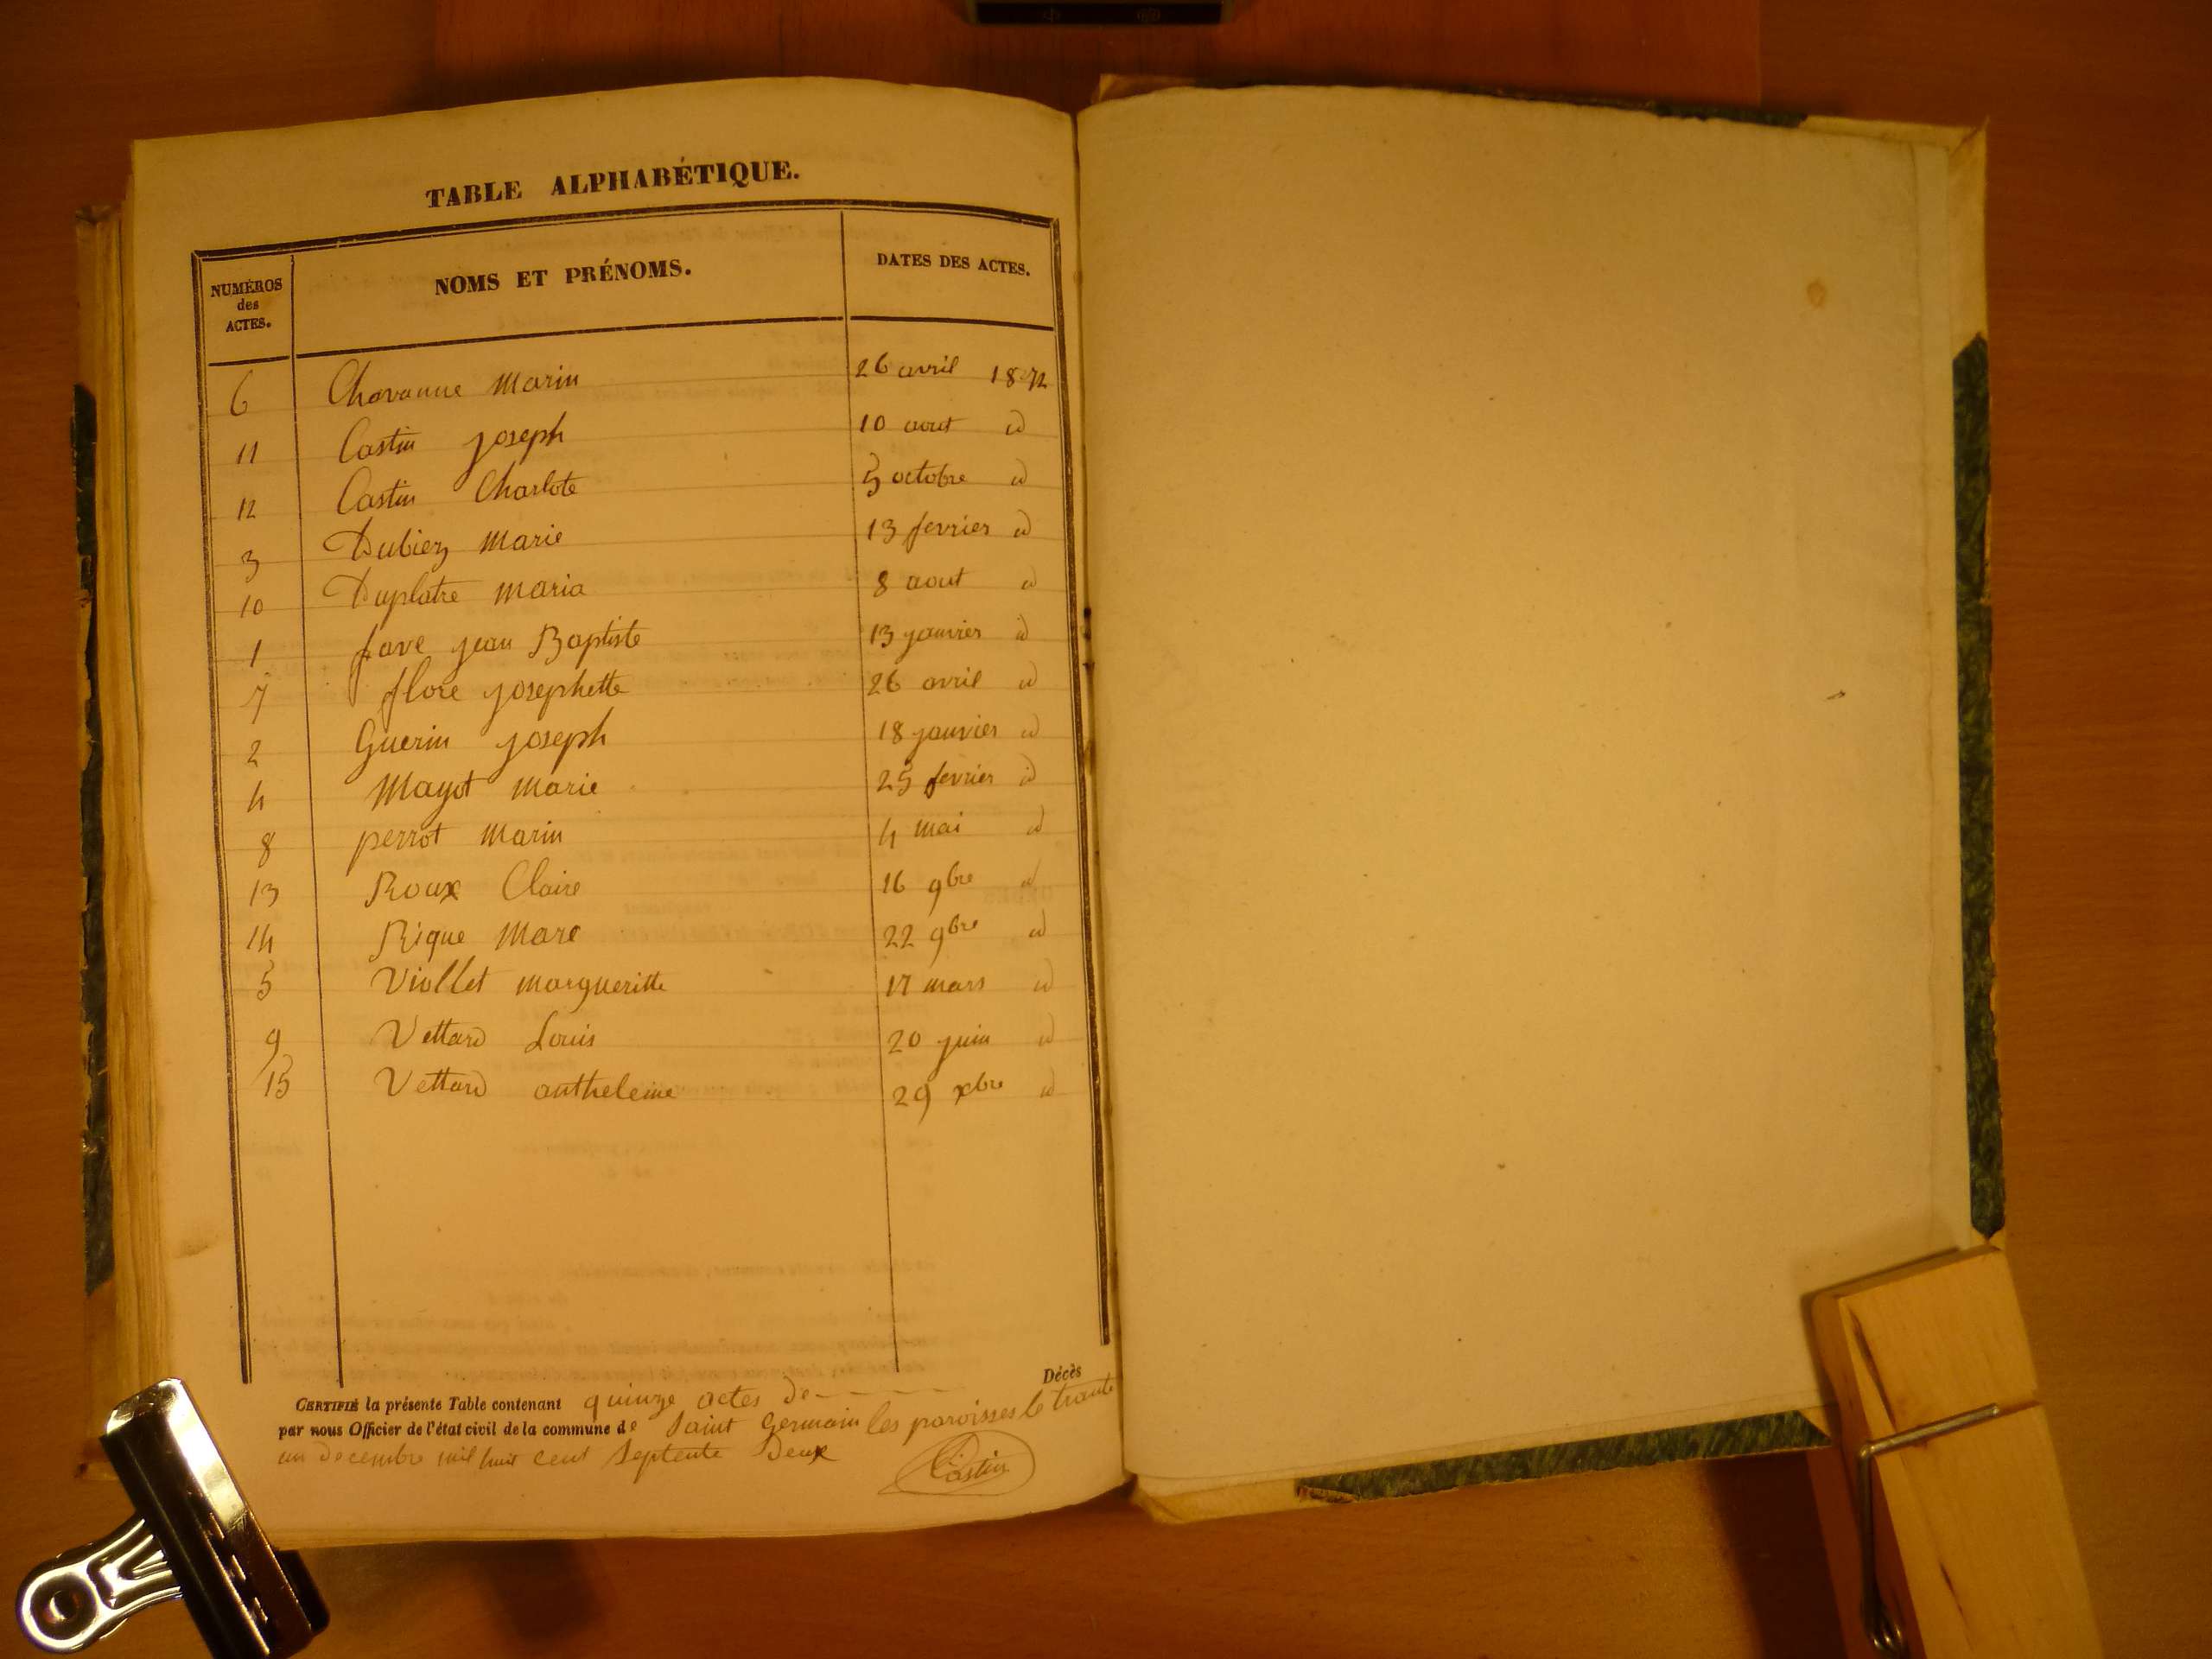 TABLE ALPHABÉTIQUE.
NUMÉROS des ACTES. NOMS ET PRÉNOMS. DATES DES ACTES.
6 Chavanne Marin 26 avril 1872
11 Castin joseph 10 aout id
12 Castin Charlote 5 octobre id
3 Dubiez Marie 13 fevrier id
10 Duplatre Maria 8 aout id
1 fave jean Baptiste 13 janvier id
7 flore josephette 26 avril id
2 Guerin joseph 18 janvier id
4 Mayot Marie 25 fevrier id
8 perrot Marin 4 mai id
13 Roux Claire 16 9bre id
14 Rique Marc 22 9bre id
5 Viollet margueritte 17 mars id
9 Vettard Louis 20 juin id
15 Vettard antheleme 29 xbre id
Décès
CERTIFIÉ la présente Table contenant quinze actes de
par nous Officier de l'état civil de la commune de Saint Germain les paroisses le trante
un decembre mil huit cent septente deux
Castin